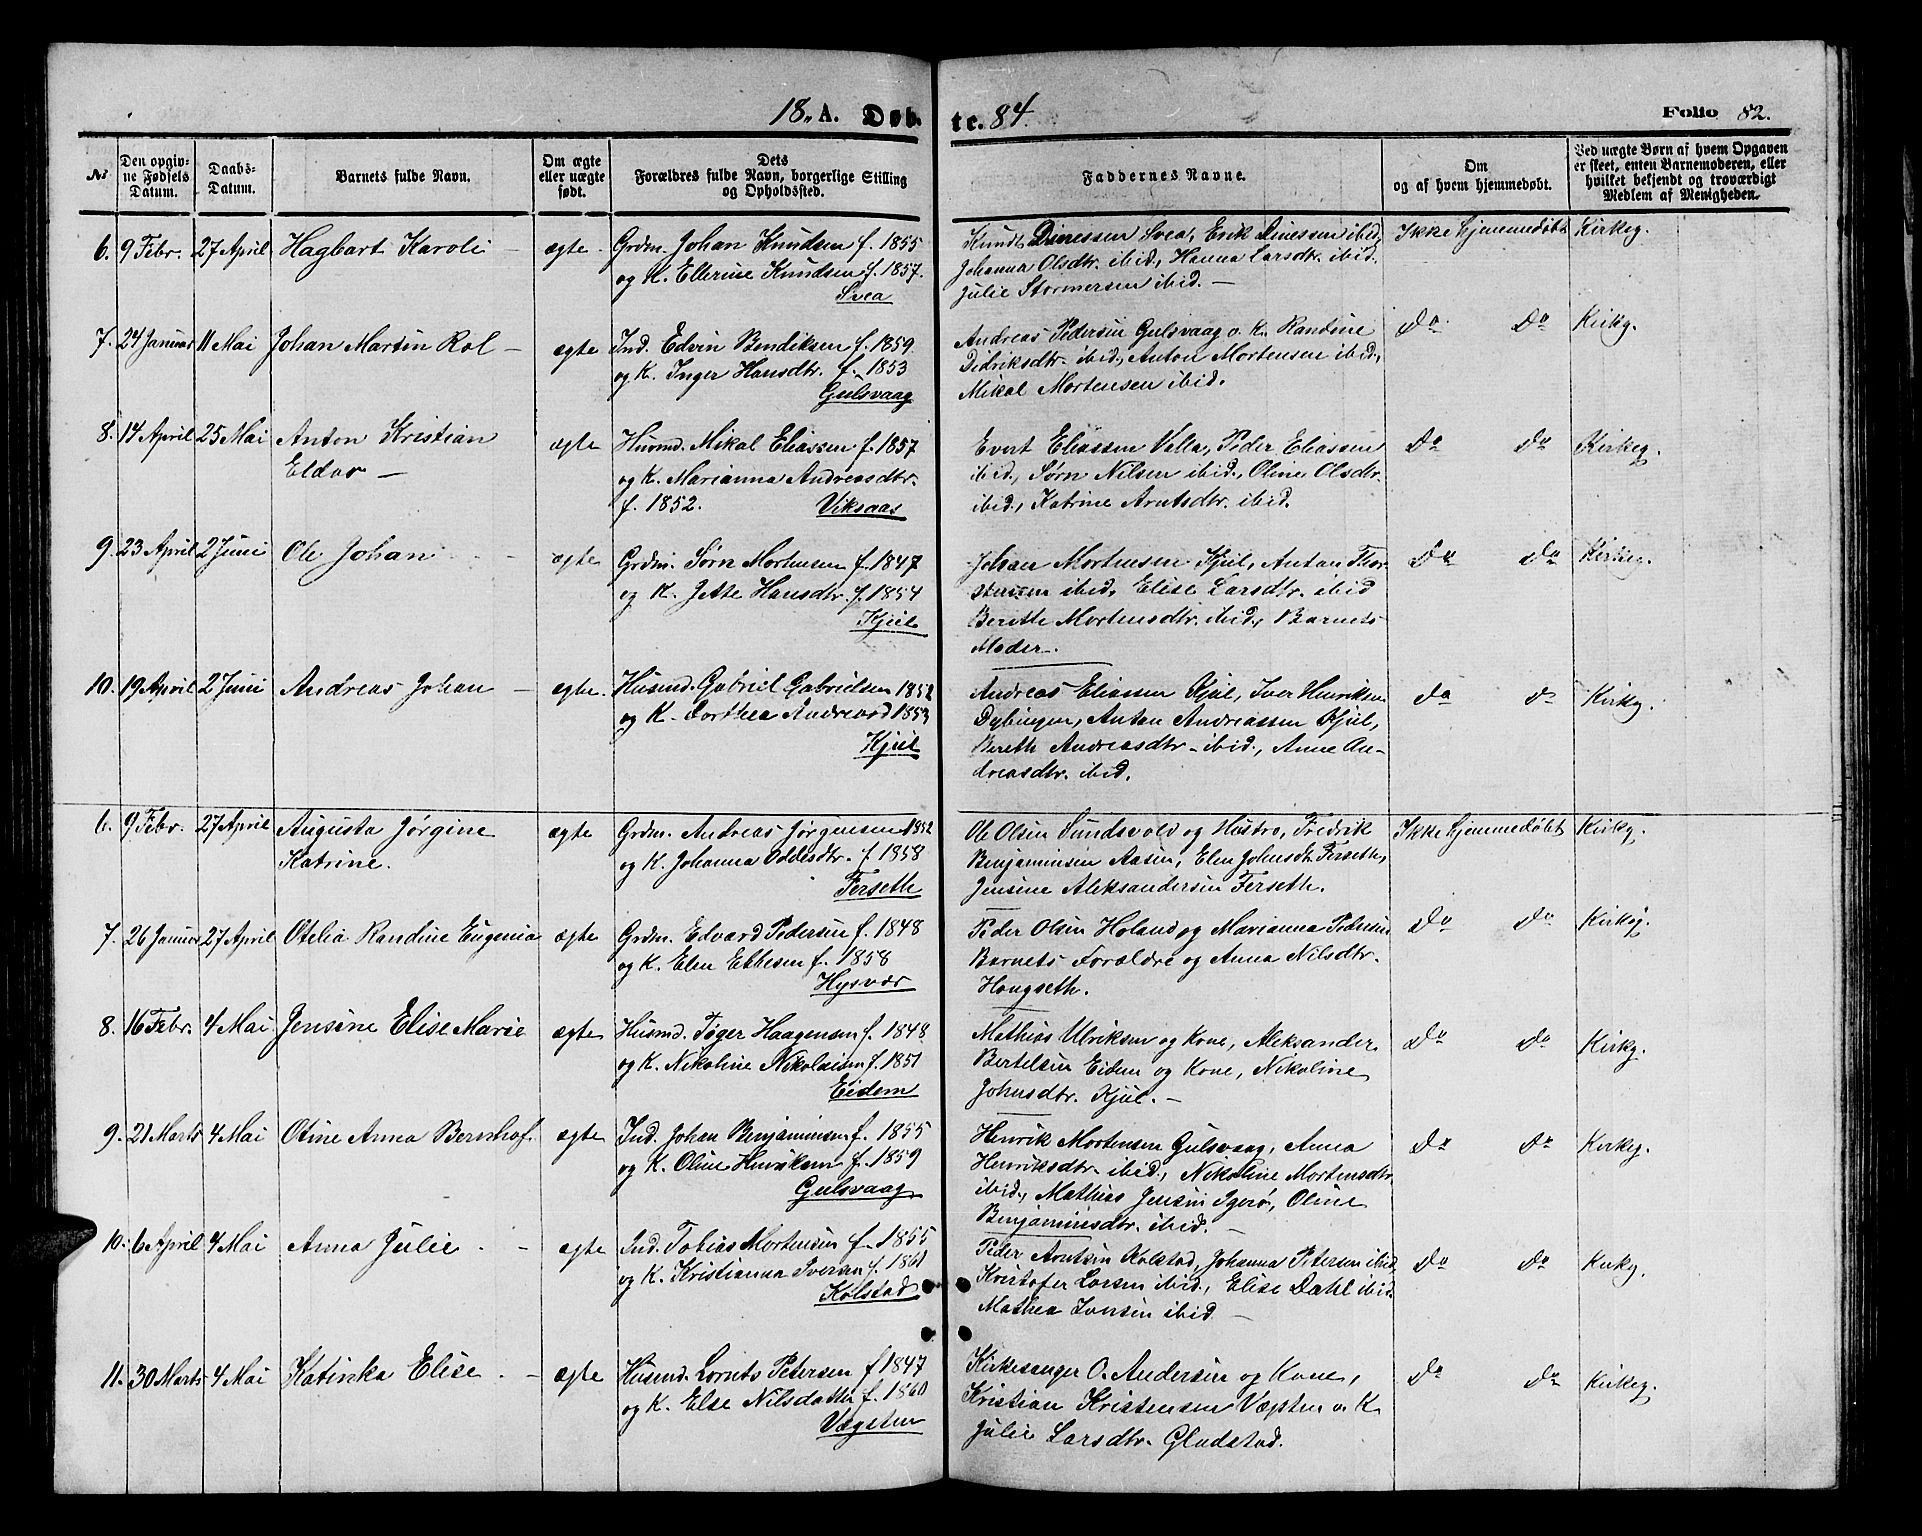 18 A. Døb-
te. 84.
Folio 82.
No
Den opgiv-
ne Fødsels
Datum.
Daabs-
Datum.
Barnets fulde Navn.
Om ægte
eller uægte
født.
Dets
Forældres fulde Navn, borgerlige Stilling
og Opholdssted.
Faddernes Navne.
Om
og af hvem hjemmedøbt.
Ved uægte Børn af hvem Opgaven
er skeet, enten Barnemoderen, eller
hvilket bekjendt og troværdigt
Medlem af Menigheden.
6. 9 Febr. 27 April Hagbart Karoli — ægte. Grdm. Johan Knudsen f. 1855
og K. Ellerine Knudsen f. 1857.
Svea
Knudt Dinessen Svea, Erik Dinessen ibid,
Johanna Olsdtr. ibid, Hanna Larsdtr. ibid.
Julie Stormersen ibid. —
Ikke hjemmedøbt Kirkeg.
7. 24 Januar 11 Mai Johan Martin Rol — ægte Ind. Edvin Bendiksen f. 1859.
og K. Inger Hansdtr. f. 1853
Gulsvaag
Andreas Pedersen Gulsvaag o. K. Randine
Didriksdtr. ibid, Anton Mortensen ibid,
Mikal Mortensen ibid.
do do Kirkg.
8. 14 April 25 Mai Anton Kristian
Eldar —
ægte Husmd. Mikal Eliassen f. 1857
og K. Marianna Andreasdtr.
f. 1852. Viksaas
Evert Eliassen Valla, Peder Eliassen
ibid, Sørn Nilsen ibid., Oline Olsdtr.
ibid, Katrine Arntsdtr. ibid.
do do Kirkeg.
9. 23 April 2 Juni Ole Johan — ægte Grdm. Sørn Mortensen f. 1847
og K. Jette Hansdtr. f. 1854
Kjul
Johan Mortensen Kjul, Anton Thor-
stensen ibid, Elise Larsdtr. ibid
Berethe Mortensdtr. ibid, Barnets
Moder.
do do Kirkeg.
10. 19 April 2 Juni Andreas Johan — ægte. Husmd. Gabriel Gabrielsen 1852
og K. Dorthea Andreasd 1853
Kjul
Andreas Eliassen Kjul, Iver Henriksen
Dybingen, Anton Andreassen Kjul,
Bereth Andreasdtr. ibid., Anne An-
dreasdtr. ibid.
do do Kirkg.
6. 9 Febr. 27 April Augusta Jørgine
Katrine.
ægte Grdm. Andreas Jørgensen 1852
og K. Johanna Oddesdtr. f 1858
Ferseth
Ole Olsen Sundsvold og Hustro, Fredrik
Benjaminsen Aasen, Elen Johnsdt Ferseth,
Jensine Aleksandersen Ferseth.
Ikke hjemmedøbt Kirkg.
7. 26 Januar 27 April Otilia Randine Eugenia ægte Grdm. Edvard Pedersen f. 1848
og K. Elen Ebbesen f. 1858
Hysvær
Peder Olsen Holand og Marianna Pedersen
Barnets Forældre og Anna Nilsdtr.
Hongseth.
do do Kirkg.
8. 16 Febr. 4 Mai Jensine Elise Marie ægte Husmd. Tøger Haagensen f. 1848
og K. Nikoline Nikolaisen f. 1851
Eidem
Mathias Ulriksen og Kone, Aleksander
Bertelsen Eidem og Kone, Nikoline
Johnsdtr. Kjul. —
do do Kirkg.
9. 21 Marts 4 Mai Otine Anna Bernhof. ægte Ind. Johan Benjaminsen f. 1855
og K. Oline Henriksen f. 1859
Gulsvaag
Henrik Mortensen Gulsvaag, Anna
Henriksdtr. ibid, Nikoline Mortensdtr
ibid, Mathias Jensen Igerø, Oline
Benjaminsdtr. ibid. —
do do Kirkeg.
10. 6 April 4 Mai Anna Julie — ægte Ind. Tobias Mortensen f. 1855
og K. Kristianna Iversen f. 1861
Kolstad
Peder Arntsen Kolstad, Johanna Petersen ibid,
Kristofer Larsen ibid, Elise Dahl ibid.
Mathea Jonsen ibid —
do do Kirkg.
11. 30 Marts 4 Mai Katinka Elise — ægte Husmd. Lornts Petersen f 1847
og K. Else Nilsdatter f. 1860
Vægsten
Kirkesanger O. Andersen og Kone,
Kristian Kristensen Vægsten o. K.
Julie Larsdtr. Gladstad.
do do Kirkeg.